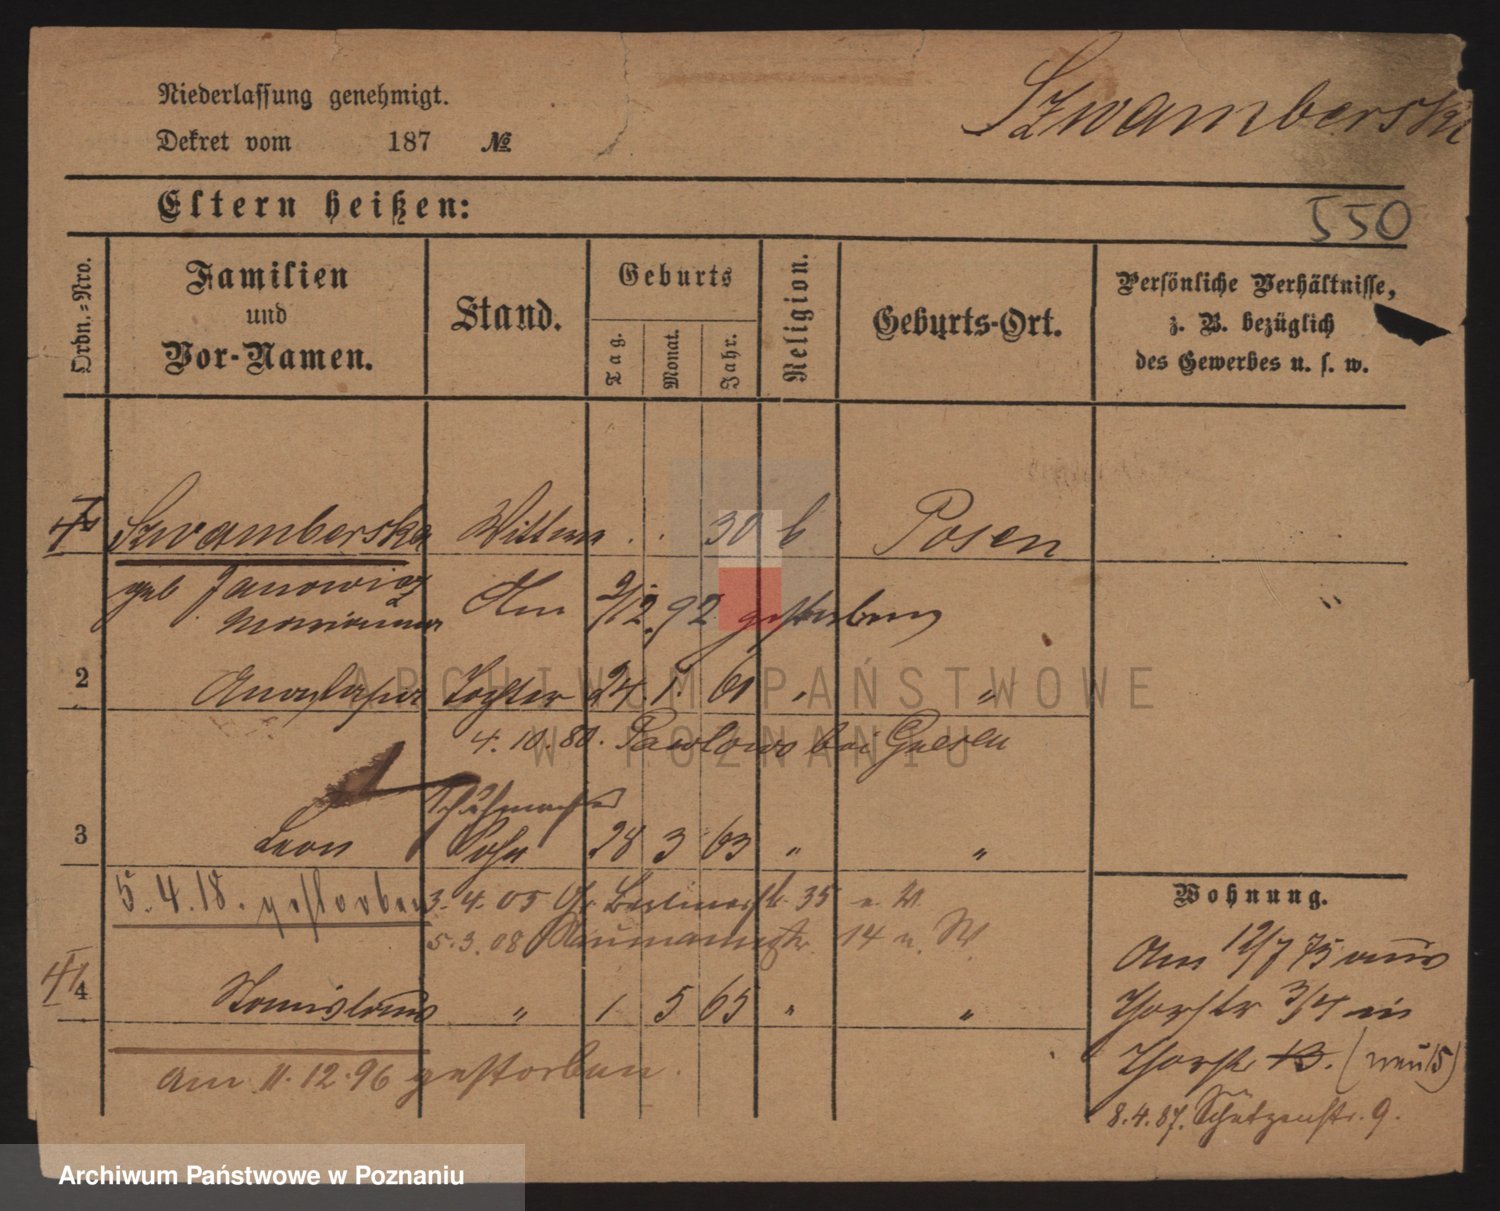 Niederlassung genehmigt.
Szwamberski
Dekret vom 187 №
Eltern heißen:
550
Ordn.-Nro.
Familien
und
Vor-Namen.
Stand.
Geburts
Tag.
Monat.
Jahr.
Religion.
Geburts-Ort.
Persönliche Verhältnisse,
z. B. bezüglich
des Gewerbes u. s. w.
Szwamberska Wittwe . . 30 Posen
geb Janowicz
Marianna Am 2/12.92 gestorben
2 Tochter 24. 1. 61 " "
4. 10. 80. Pawlowo bei Gnesen
Schuhmacher
3 Leon Sohn 28 3 63 " "
5.4.18. gestorben 3. 4. 05 Gr. Berlinerstr. 35 n. W.
5.3.08 Naumannstr. 14 n. W.
4 Stanislaus " 1 5 65 " "
am 11.12.96 gestorben.
Wohnung.
Am 12/7 75 aus
Thorstr 3/4 in
Thorstr 13. (neu 15)
8.4.87. Schützenstr. 9.
ARCHIWUM PAŃSTWOWE
W POZNANIU
Archiwum Państwowe w Poznaniu